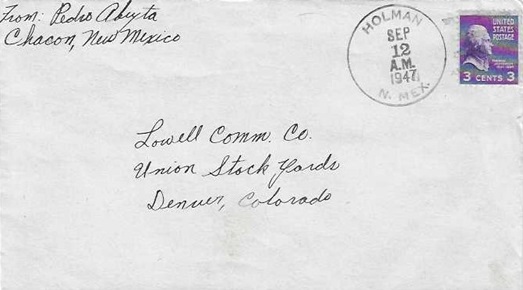 From: Pedro Abeyta
Chacon, New Mexico
HOLMAN
SEP
12
A.M.
1947
N. MEX.
UNITED
STATES
POSTAGE
3 CENTS 3
Lowell Comm. Co.
Union Stock Yards
Denver, Colorado